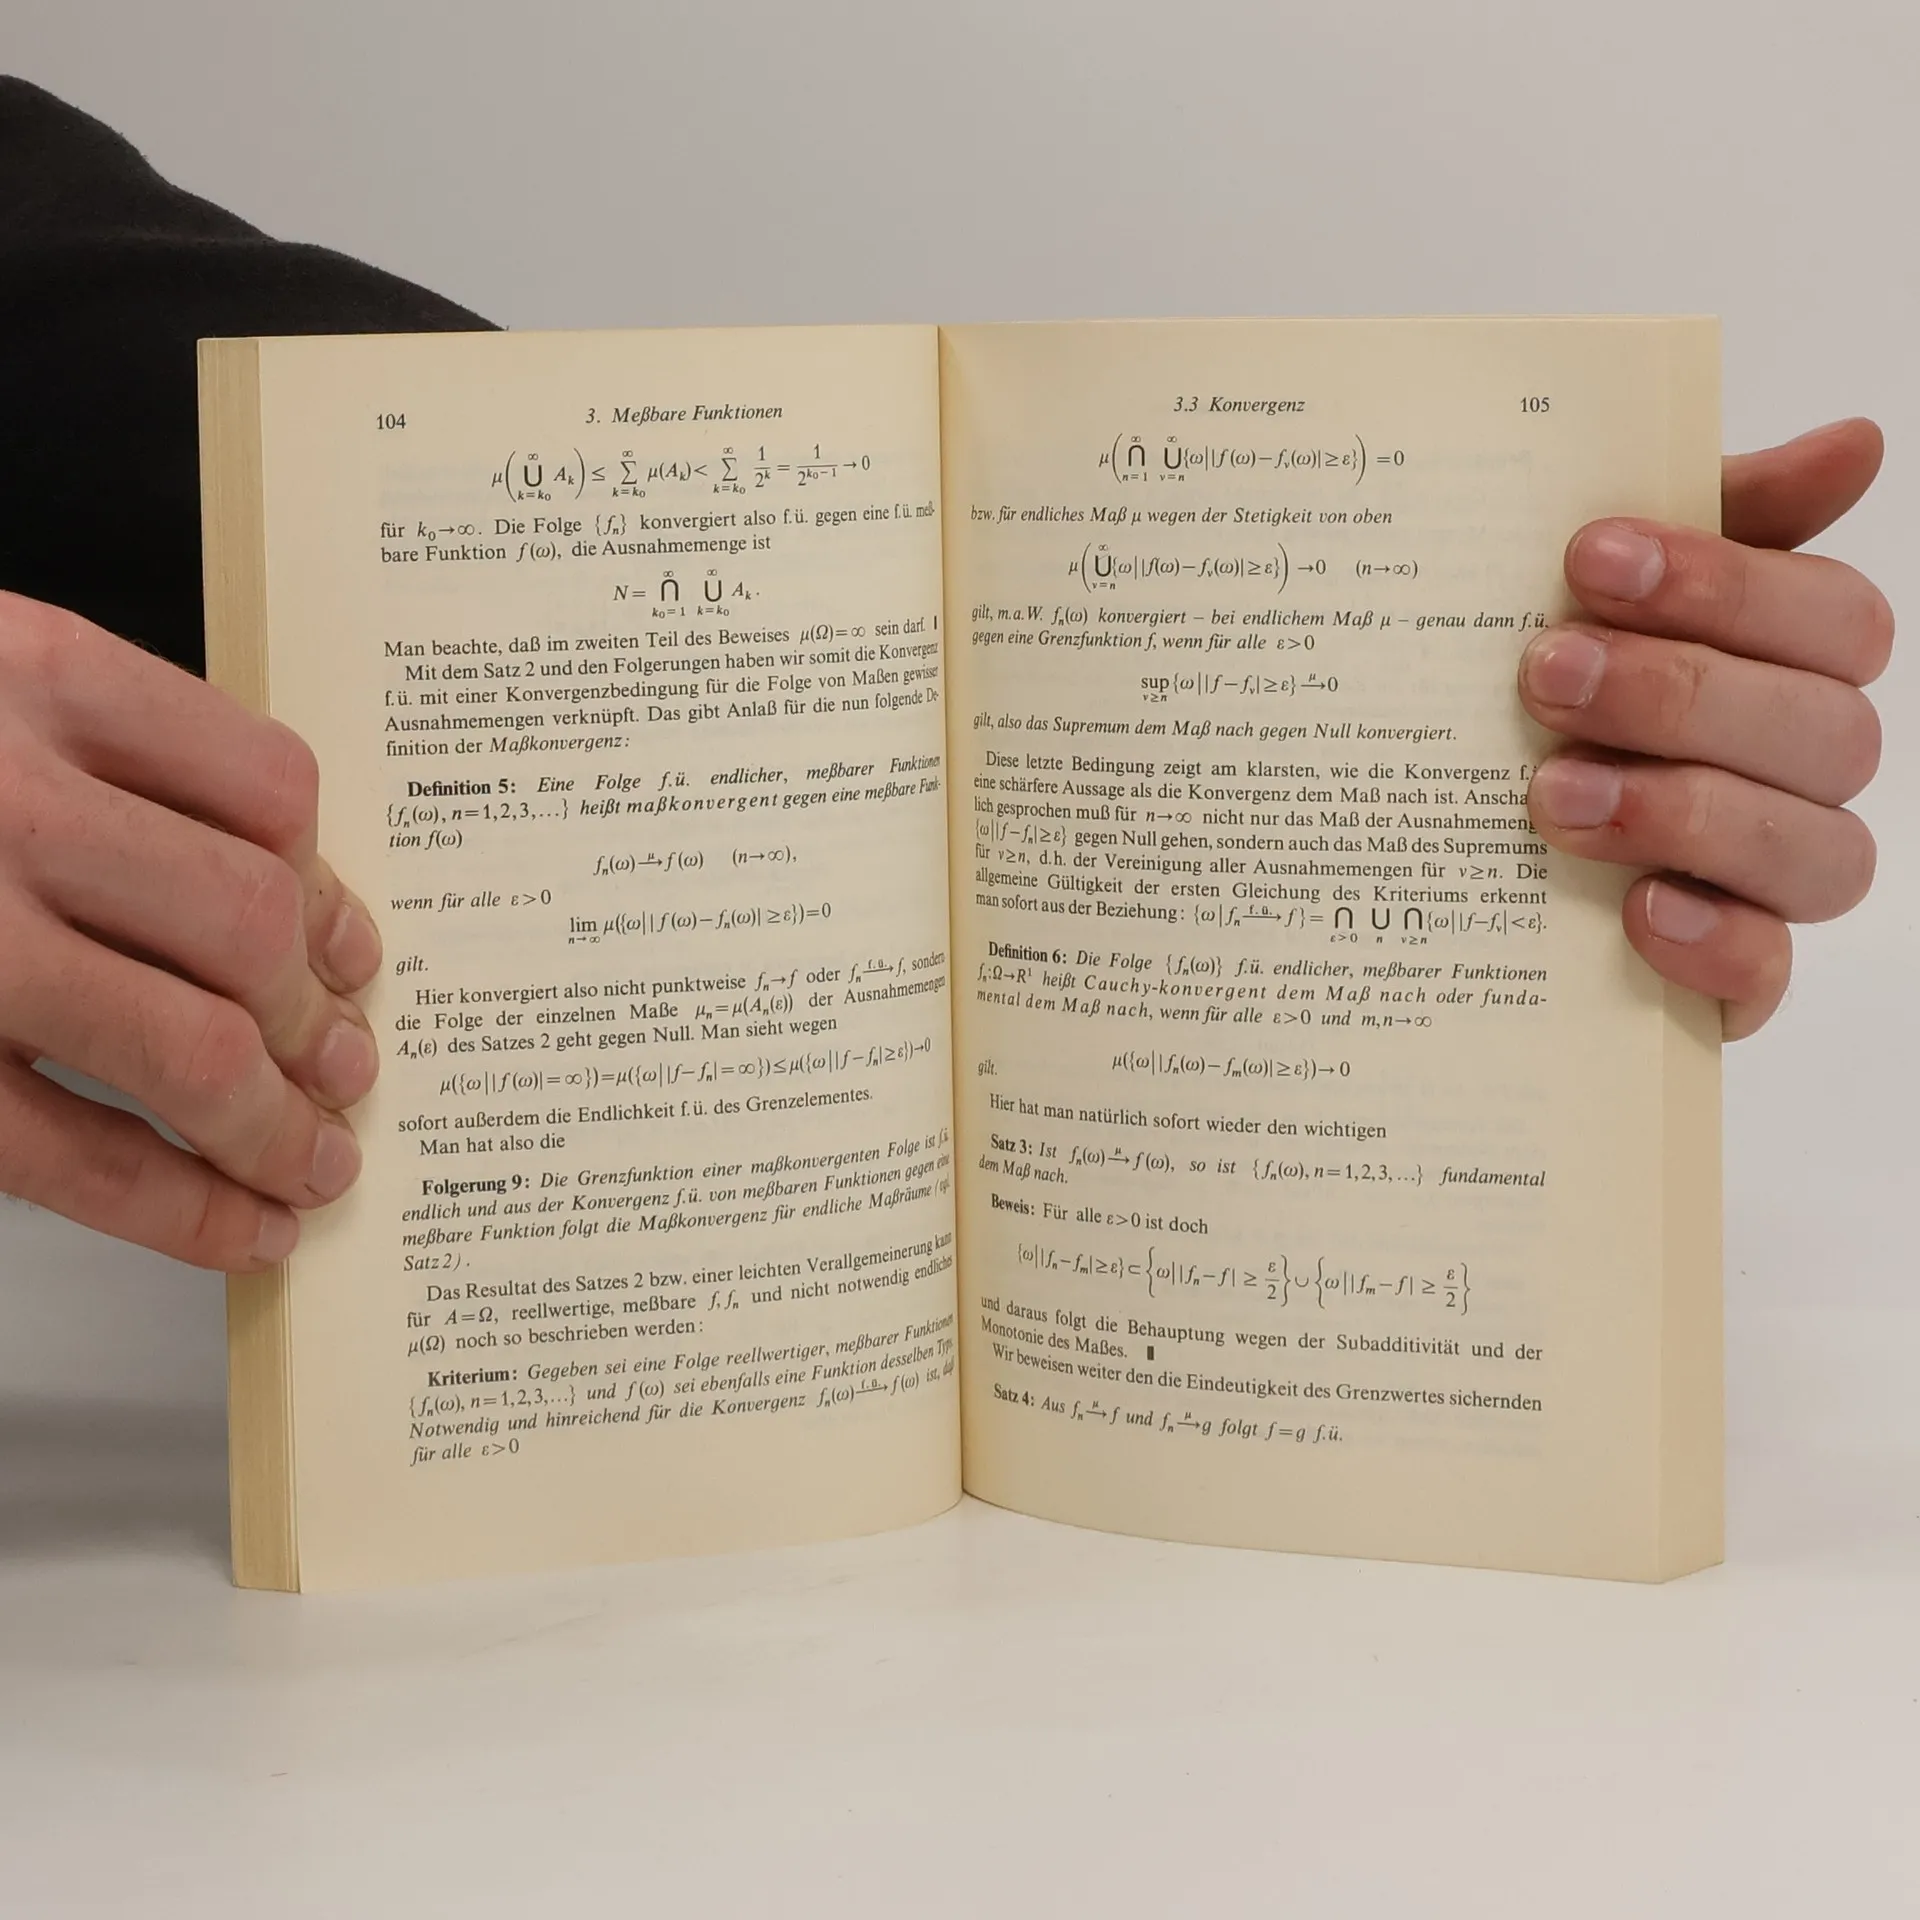 104
3. Meßbare Funktionen
μ(⋃_{k=k₀}^∞ A_k) ≤ ∑_{k=k₀}^∞ μ(A_k) < ∑_{k=k₀}^∞ 1/2^k = 1/2^{k₀−1} → 0
für k₀→∞. Die Folge {fₙ} konvergiert also f.ü. gegen eine f.ü. meß-
bare Funktion f(ω), die Ausnahmemenge ist
N = ⋂_{k₀=1}^∞ ⋃_{k=k₀}^∞ A_k.
Man beachte, daß im zweiten Teil des Beweises μ(Ω)=∞ sein darf. ▮
Mit dem Satz 2 und den Folgerungen haben wir somit die Konvergenz
f.ü. mit einer Konvergenzbedingung für die Folge von Maßen gewisser
Ausnahmemengen verknüpft. Das gibt Anlaß für die nun folgende De-
finition der Maßkonvergenz:
Definition 5: Eine Folge f.ü. endlicher, meßbarer Funktionen
{fₙ(ω), n=1,2,3,...} heißt maßkonvergent gegen eine meßbare Funk-
tion f(ω)
fₙ(ω) →^μ f(ω) (n→∞),
wenn für alle ε>0
lim_{n→∞} μ({ω||f(ω)−fₙ(ω)|≥ε})=0
gilt.
Hier konvergiert also nicht punktweise fₙ→f oder fₙ →^{f.ü.} f, sondern
die Folge der einzelnen Maße μₙ=μ(Aₙ(ε)) der Ausnahmemengen
Aₙ(ε) des Satzes 2 geht gegen Null. Man sieht wegen
μ({ω||f(ω)|=∞})=μ({ω||f−fₙ|=∞})≤μ({ω||f−fₙ|≥ε})→0
sofort außerdem die Endlichkeit f.ü. des Grenzelementes.
Man hat also die
Folgerung 9: Die Grenzfunktion einer maßkonvergenten Folge ist f.ü.
endlich und aus der Konvergenz f.ü. von meßbaren Funktionen gegen eine
meßbare Funktion folgt die Maßkonvergenz für endliche Maßräume (vgl.
Satz 2).
Das Resultat des Satzes 2 bzw. einer leichten Verallgemeinerung kann
für A=Ω, reellwertige, meßbare f, fₙ und nicht notwendig endliches
μ(Ω) noch so beschrieben werden:
Kriterium: Gegeben sei eine Folge reellwertiger, meßbarer Funktionen
{fₙ(ω), n=1,2,3,...} und f(ω) sei ebenfalls eine Funktion desselben Typs.
Notwendig und hinreichend für die Konvergenz fₙ(ω) →^{f.ü.} f(ω) ist, daß
für alle ε>0
3.3 Konvergenz
105
μ(⋂_{n=1}^∞ ⋃_{ν=n}^∞ {ω||f(ω)−f_ν(ω)|≥ε}) = 0
bzw. für endliches Maß μ wegen der Stetigkeit von oben
μ(⋃_{ν=n}^∞ {ω||f(ω)−f_ν(ω)|≥ε}) → 0 (n→∞)
gilt, m.a.W. fₙ(ω) konvergiert – bei endlichem Maß μ – genau dann f.ü.
gegen eine Grenzfunktion f, wenn für alle ε>0
sup_{ν≥n} {ω||f−f_ν|≥ε} →^μ 0
gilt, also das Supremum dem Maß nach gegen Null konvergiert.
Diese letzte Bedingung zeigt am klarsten, wie die Konvergenz f.
eine schärfere Aussage als die Konvergenz dem Maß nach ist. Anscha
lich gesprochen muß für n→∞ nicht nur das Maß der Ausnahmemeng
{ω||f−fₙ|≥ε} gegen Null gehen, sondern auch das Maß des Supremums
für ν≥n, d.h. der Vereinigung aller Ausnahmemengen für ν≥n. Die
allgemeine Gültigkeit der ersten Gleichung des Kriteriums erkennt
man sofort aus der Beziehung: {ω|fₙ →^{f.ü.} f} = ⋂_{ε>0} ⋃_n ⋂_{ν≥n} {ω||f−f_ν|<ε}.
Definition 6: Die Folge {fₙ(ω)} f.ü. endlicher, meßbarer Funktionen
fₙ:Ω→R¹ heißt Cauchy-konvergent dem Maß nach oder funda-
mental dem Maß nach, wenn für alle ε>0 und m,n→∞
μ({ω||fₙ(ω)−f_m(ω)|≥ε})→0
gilt.
Hier hat man natürlich sofort wieder den wichtigen
Satz 3: Ist fₙ(ω) →^μ f(ω), so ist {fₙ(ω), n=1,2,3,...} fundamental
dem Maß nach.
Beweis: Für alle ε>0 ist doch
{ω||fₙ−f_m|≥ε} ⊂ {ω||fₙ−f| ≥ ε/2} ∪ {ω||f_m−f| ≥ ε/2}
und daraus folgt die Behauptung wegen der Subadditivität und der
Monotonie des Maßes. ▮
Wir beweisen weiter den die Eindeutigkeit des Grenzwertes sichernden
Satz 4: Aus fₙ →^μ f und fₙ →^μ g folgt f=g f.ü.